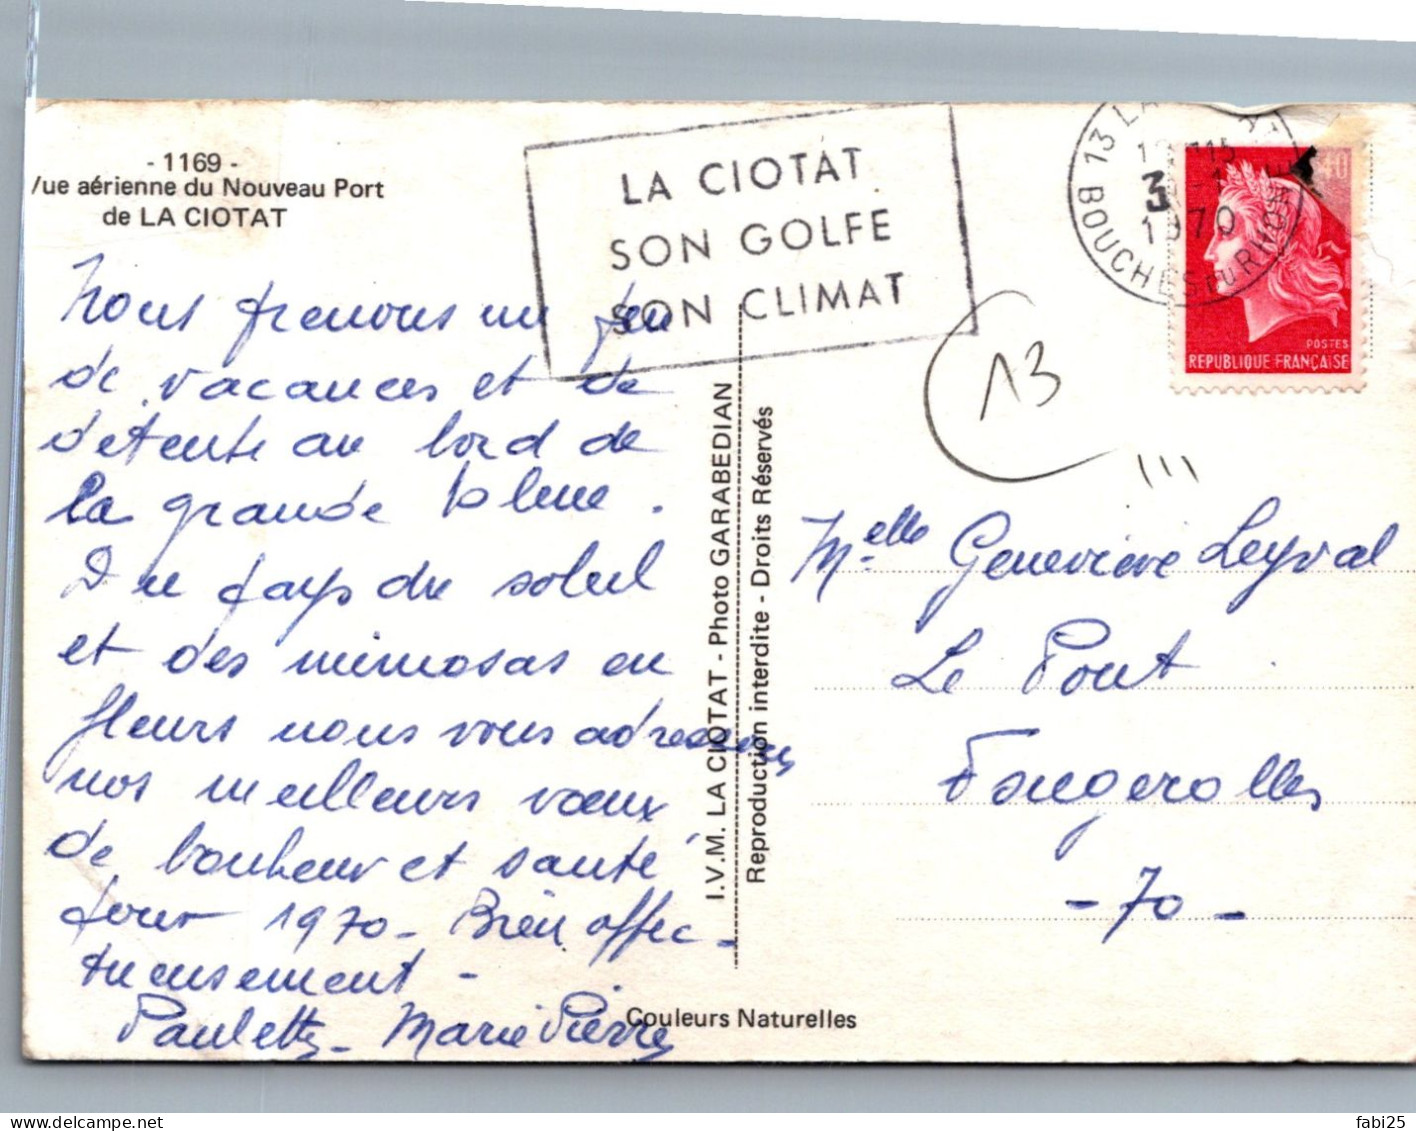 - 1169 -
Vue aérienne du Nouveau Port
de LA CIOTAT
LA CIOTAT
SON GOLFE
SON CLIMAT
13 LA
BOUCHES DU RHONE
3
1970
40
POSTES
REPUBLIQUE FRANÇAISE
13
Nous prenons un peu
de vacances et de
détente au bord de
la grande bleue.
Du pays du soleil
et des mimosas en
fleurs nous vous adressons
nos meilleurs vœux
de bonheur et santé
pour 1970 - Bien affec-
tueusement -
Paulette - Marie Pierre
I.V.M. LA CIOTAT - Photo GARABEDIAN
Reproduction interdite - Droits Réservés
Melle Geneviève Leyval
Le Pont
Fougerolles
- 70 -
Couleurs Naturelles
delcampe.net
fabi25